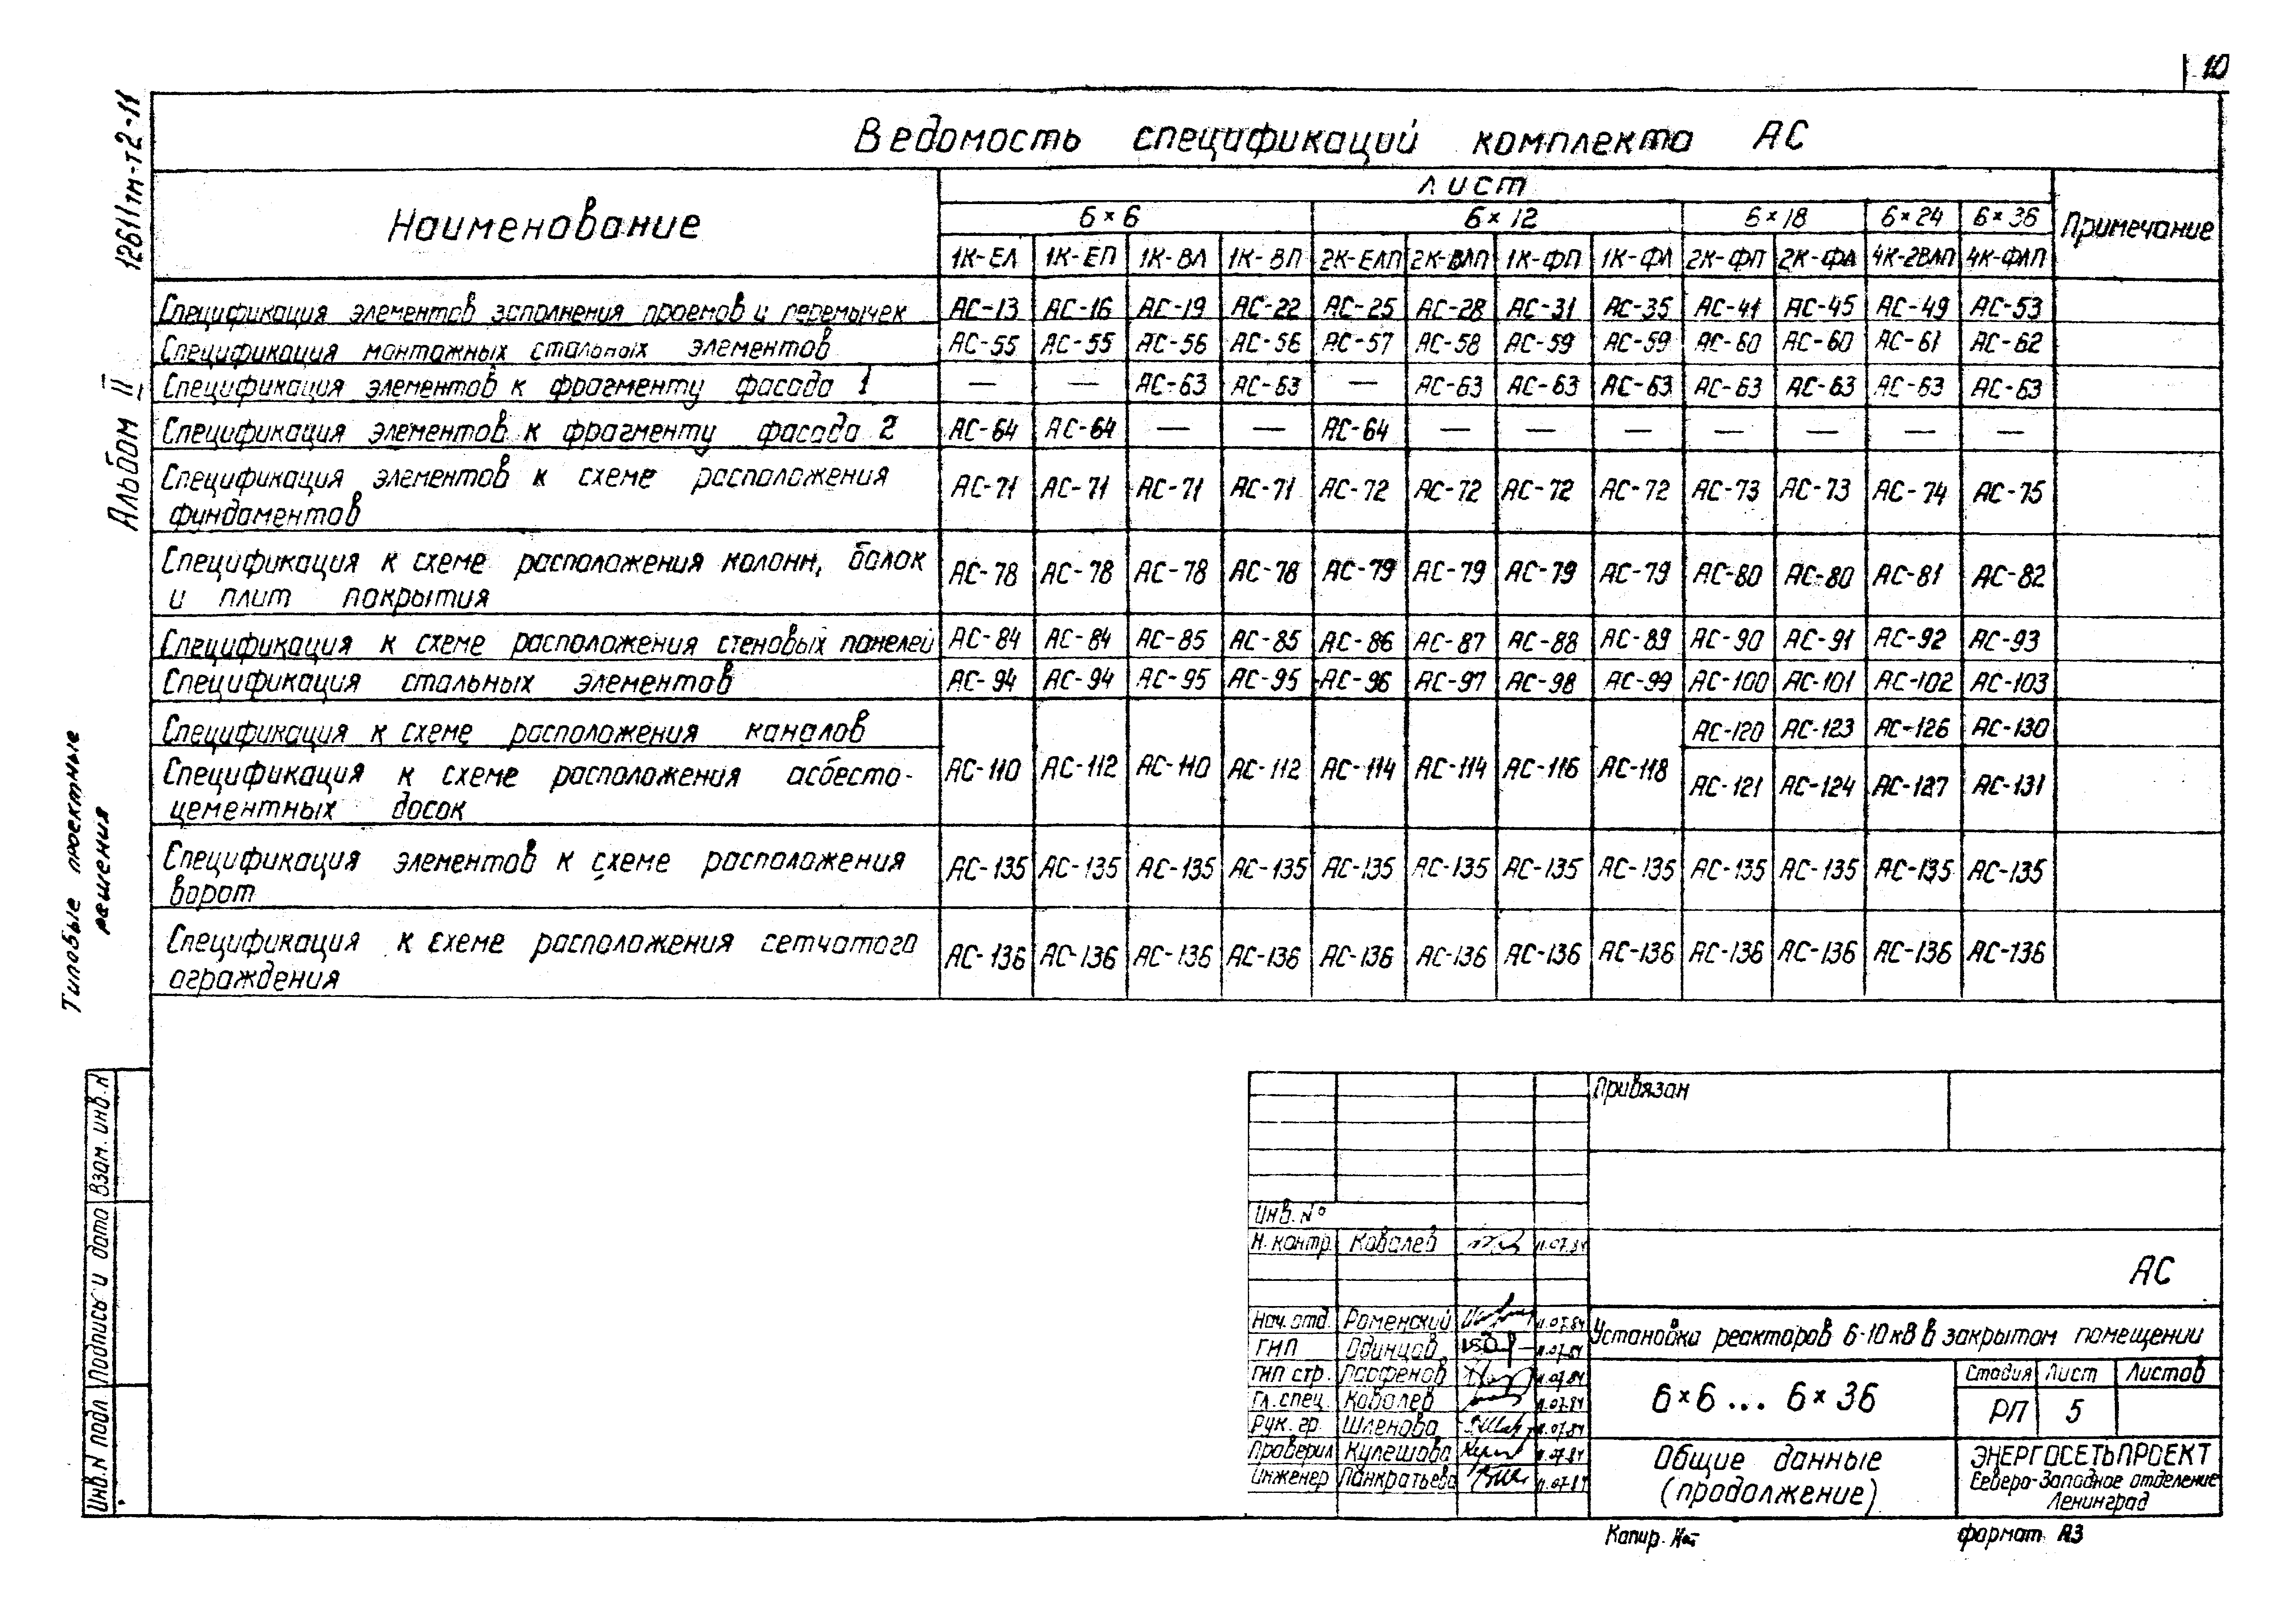 10
12611тм-т2-11
Альбом II
Типовые проектные
решения
Ведомость спецификаций комплекта АС
Наименование
Лист
Примечание
6×6 6×12 6×18 6×24 6×36
1К-ЕЛ 1К-ЕП 1К-ВЛ 1К-ВП 2К-ЕЛП 2К-ВЛП 1К-ФП 1К-ФЛ 2К-ФП 2К-ФЛ 4К-2ВЛП 4К-ФЛП
Спецификация элементов заполнения проемов и перемычек АС-13 АС-16 АС-19 АС-22 АС-25 АС-28 АС-31 АС-35 АС-41 АС-45 АС-49 АС-53
Спецификация монтажных стальных элементов АС-55 АС-55 АС-56 АС-56 АС-57 АС-58 АС-59 АС-59 АС-60 АС-60 АС-61 АС-62
Спецификация элементов к фрагменту фасада 1 — — АС-63 АС-63 — АС-63 АС-63 АС-63 АС-63 АС-63 АС-63 АС-63
Спецификация элементов к фрагменту фасада 2 АС-64 АС-64 — — АС-64 — — — — — — —
Спецификация элементов к схеме расположения
фундаментов
АС-71 АС-71 АС-71 АС-71 АС-72 АС-72 АС-72 АС-72 АС-73 АС-73 АС-74 АС-75
Спецификация к схеме расположения колонн, балок
и плит покрытия
АС-78 АС-78 АС-78 АС-78 АС-79 АС-79 АС-79 АС-79 АС-80 АС-80 АС-81 АС-82
Спецификация к схеме расположения стеновых панелей АС-84 АС-84 АС-85 АС-85 АС-86 АС-87 АС-88 АС-89 АС-90 АС-91 АС-92 АС-93
Спецификация стальных элементов АС-94 АС-94 АС-95 АС-95 АС-96 АС-97 АС-98 АС-99 АС-100 АС-101 АС-102 АС-103
Спецификация к схеме расположения каналов АС-120 АС-123 АС-126 АС-130
АС-110 АС-112 АС-110 АС-112 АС-114 АС-114 АС-116 АС-118
Спецификация к схеме расположения асбесто-
цементных досок
АС-121 АС-124 АС-127 АС-131
Спецификация элементов к схеме расположения
ворот
АС-135 АС-135 АС-135 АС-135 АС-135 АС-135 АС-135 АС-135 АС-135 АС-135 АС-135 АС-135
Спецификация к схеме расположения сетчатого
ограждения
АС-136 АС-136 АС-136 АС-136 АС-136 АС-136 АС-136 АС-136 АС-136 АС-136 АС-136 АС-136
Взам. инв. N
Подпись и дата
Инв. N подл
Привязан
Инв. N°
Н. контр. Ковалев 11.07.84
АС
Нач. отд. Роменский 11.07.84
ГИП Одинцов 11.07.84
ГИП стр. Парфенов 11.07.84
Гл. спец. Ковалев 11.07.84
Рук. гр. Шленова 11.07.84
Проверил Кулешова 11.07.84
Инженер Панкратьева 11.07.84
Установка реакторов 6-10кВ в закрытом помещении
6×6 ... 6×36
Стадия Лист Листов
РП 5
Общие данные
(продолжение)
ЭНЕРГОСЕТЬПРОЕКТ
Северо-Западное отделение
Ленинград
Копир.
формат А3